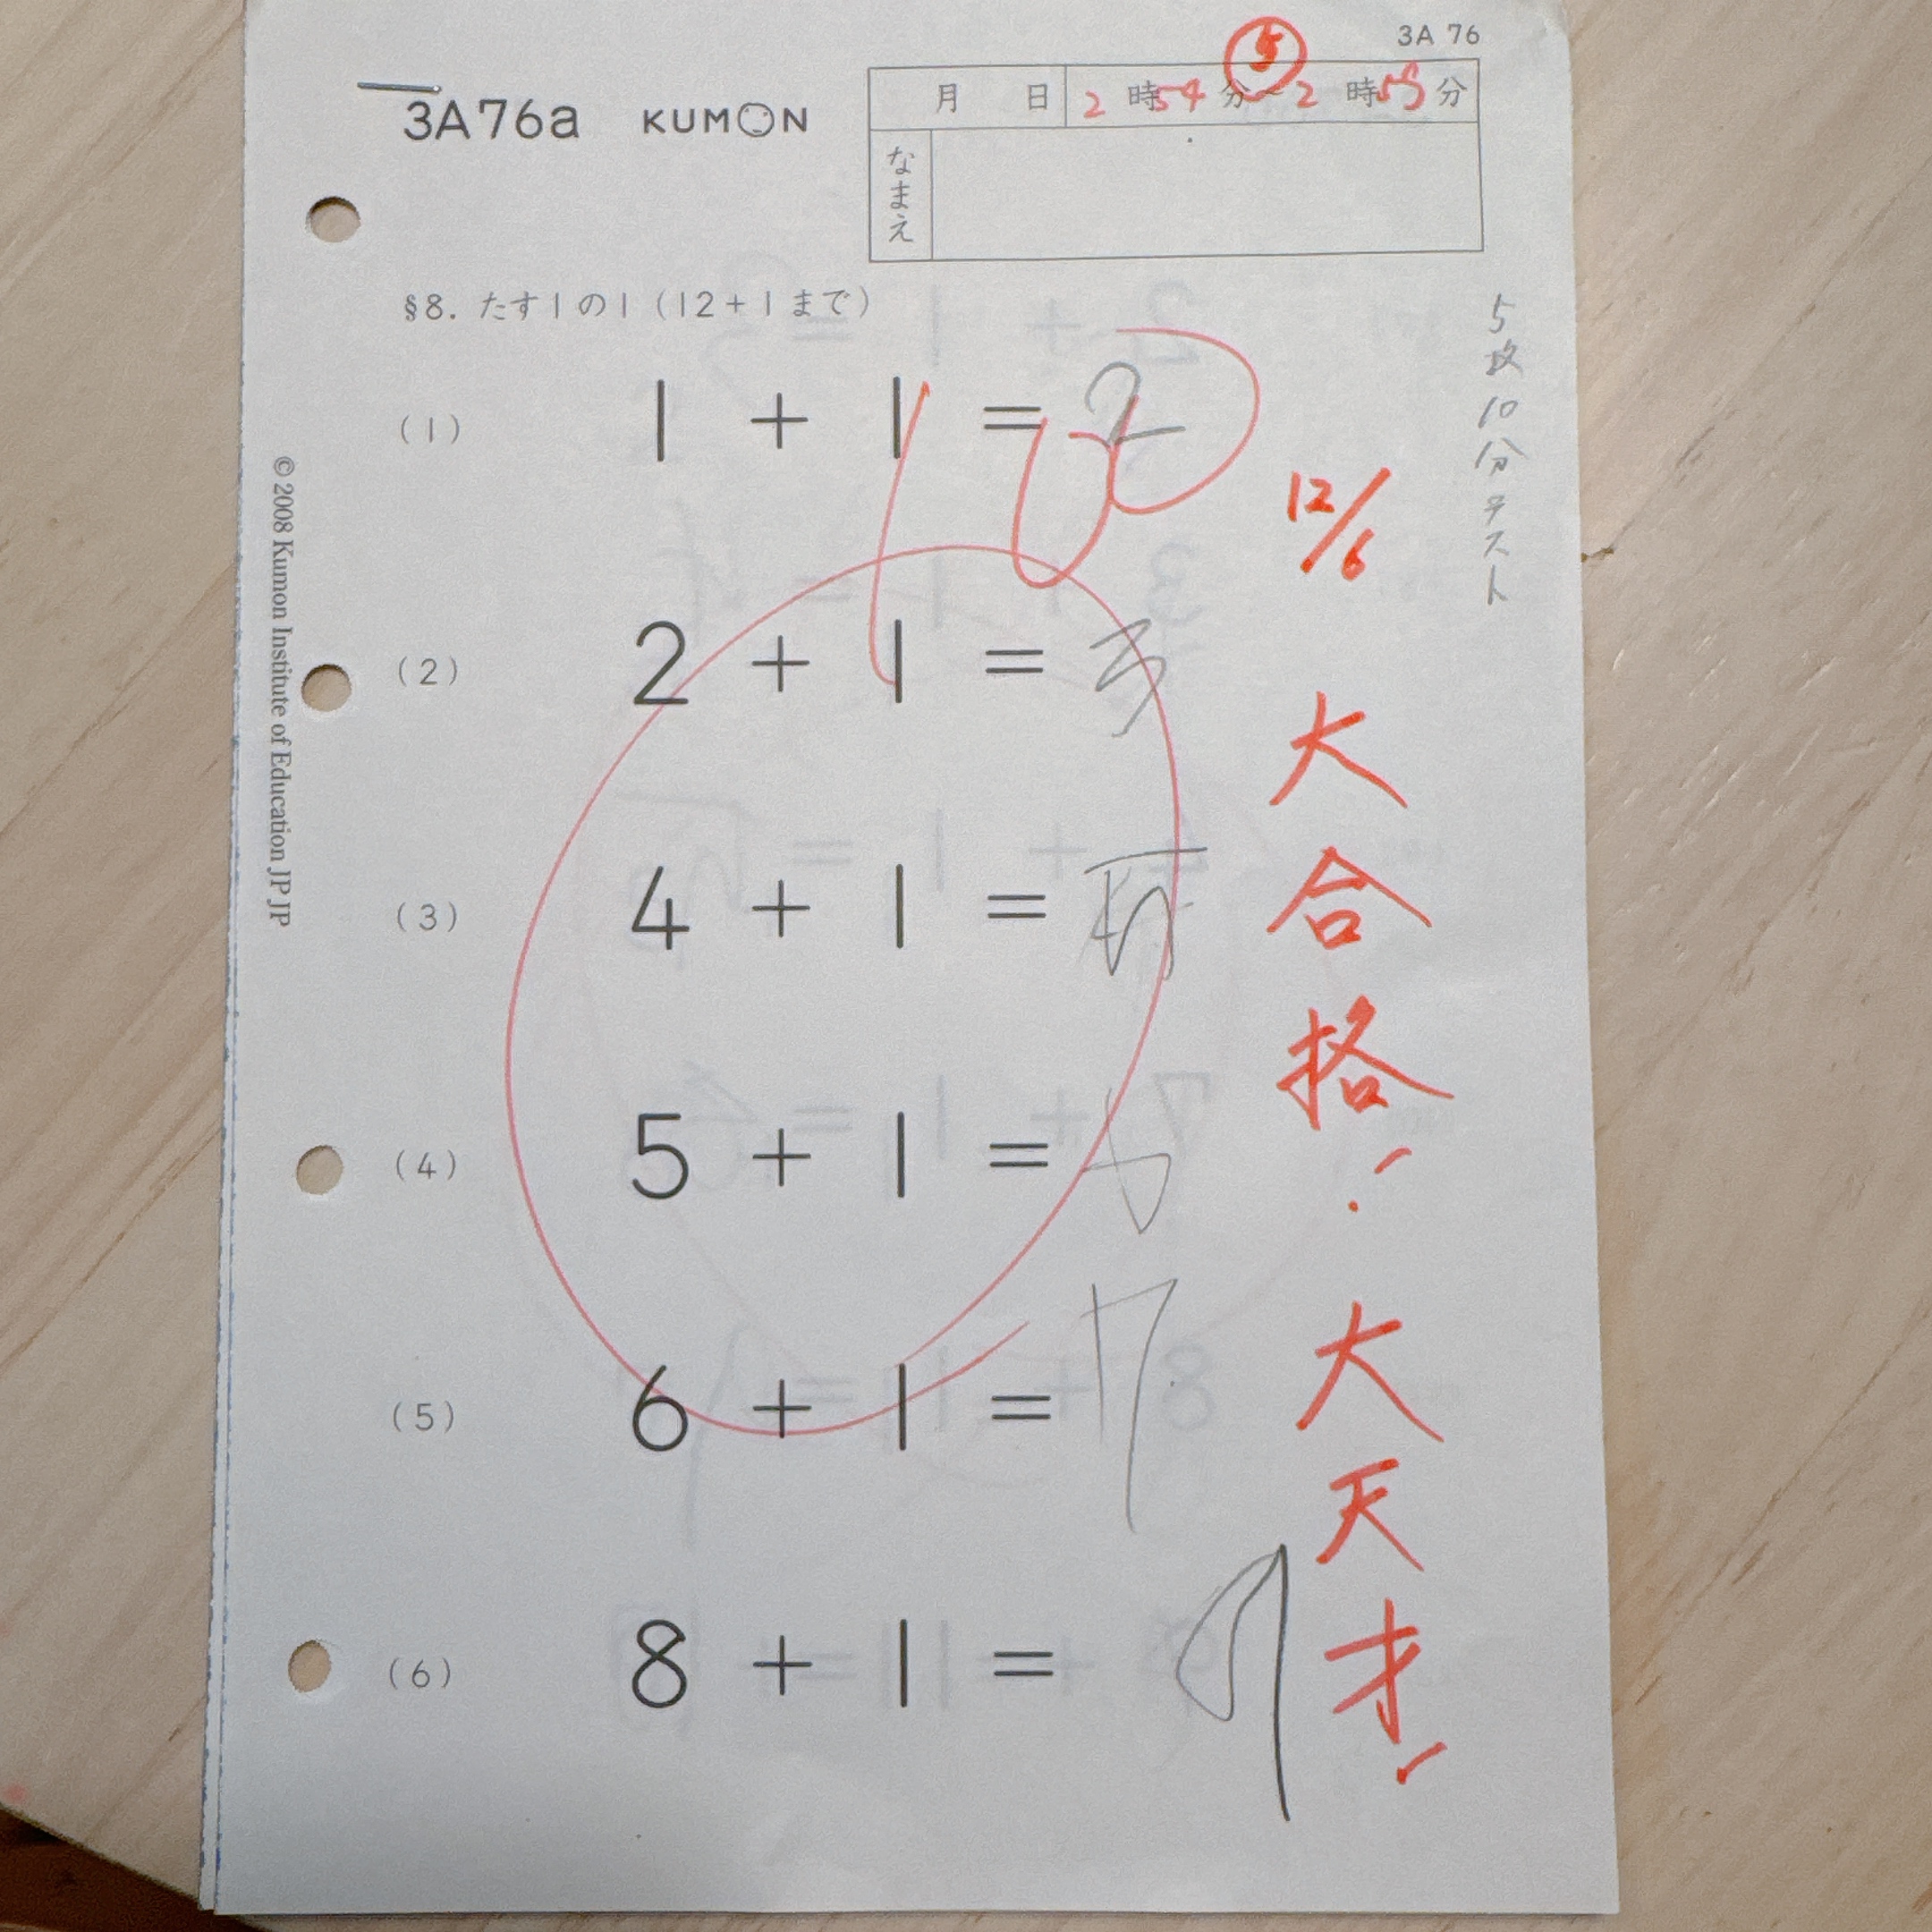 3A 76
3A76a KUMON
月 日 2時54分~2時59分
⑤
なまえ
§8. たす1の1(12+1まで)
(1) 1 + 1 = 2
(2) 2 + 1 = 3
(3) 4 + 1 = 5
(4) 5 + 1 = 6
(5) 6 + 1 = 7
(6) 8 + 1 = 9
100
5枚10分テスト
12/6
大合格!
大天才!
© 2008 Kumon Institute of Education JP JP